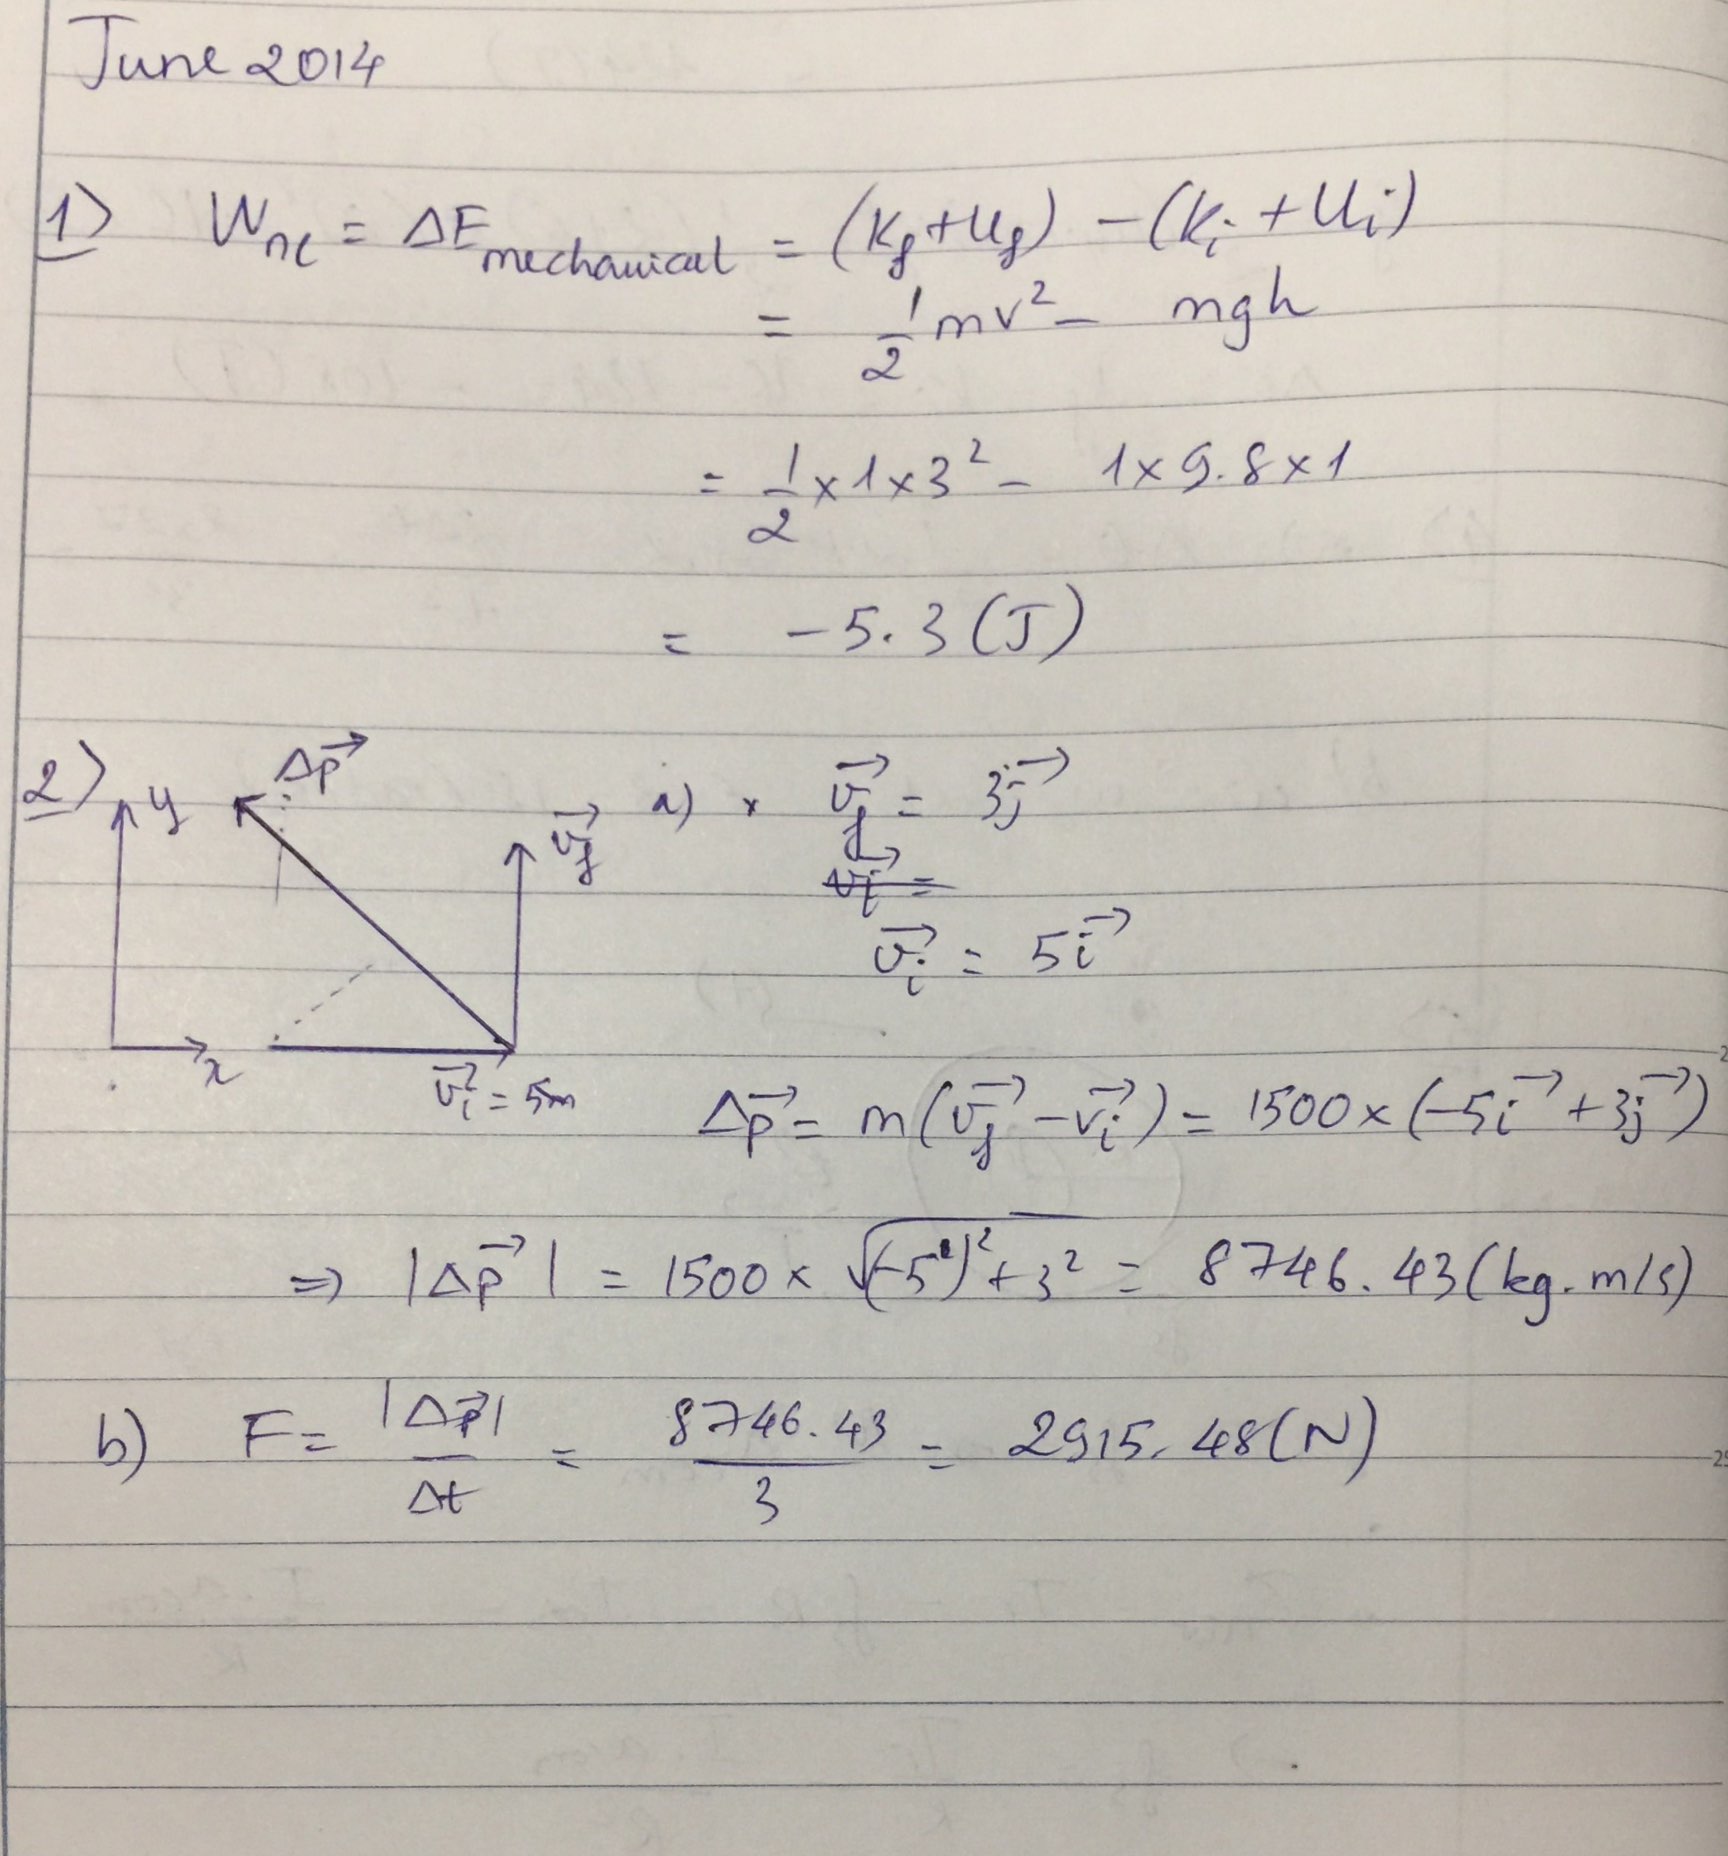 June 2014
1) Wnc = ΔEmechanical = (Kf + Uf) − (Ki + Ui)
= 1/2 mv² − mgh
= 1/2 × 1 × 3² − 1 × 9.8 × 1
= −5.3 (J)
2) y Δp⃗ v⃗f a) × v⃗f = 3j⃗
v⃗i =
v⃗i = 5i⃗
x v⃗i = 5m
Δp⃗ = m(v⃗f − v⃗i) = 1500 × (−5i⃗ + 3j⃗)
⇒ |Δp⃗| = 1500 × √(−5)² + 3² = 8746.43 (kg.m/s)
b) F = |Δp⃗|/Δt = 8746.43/3 = 2915.48 (N)